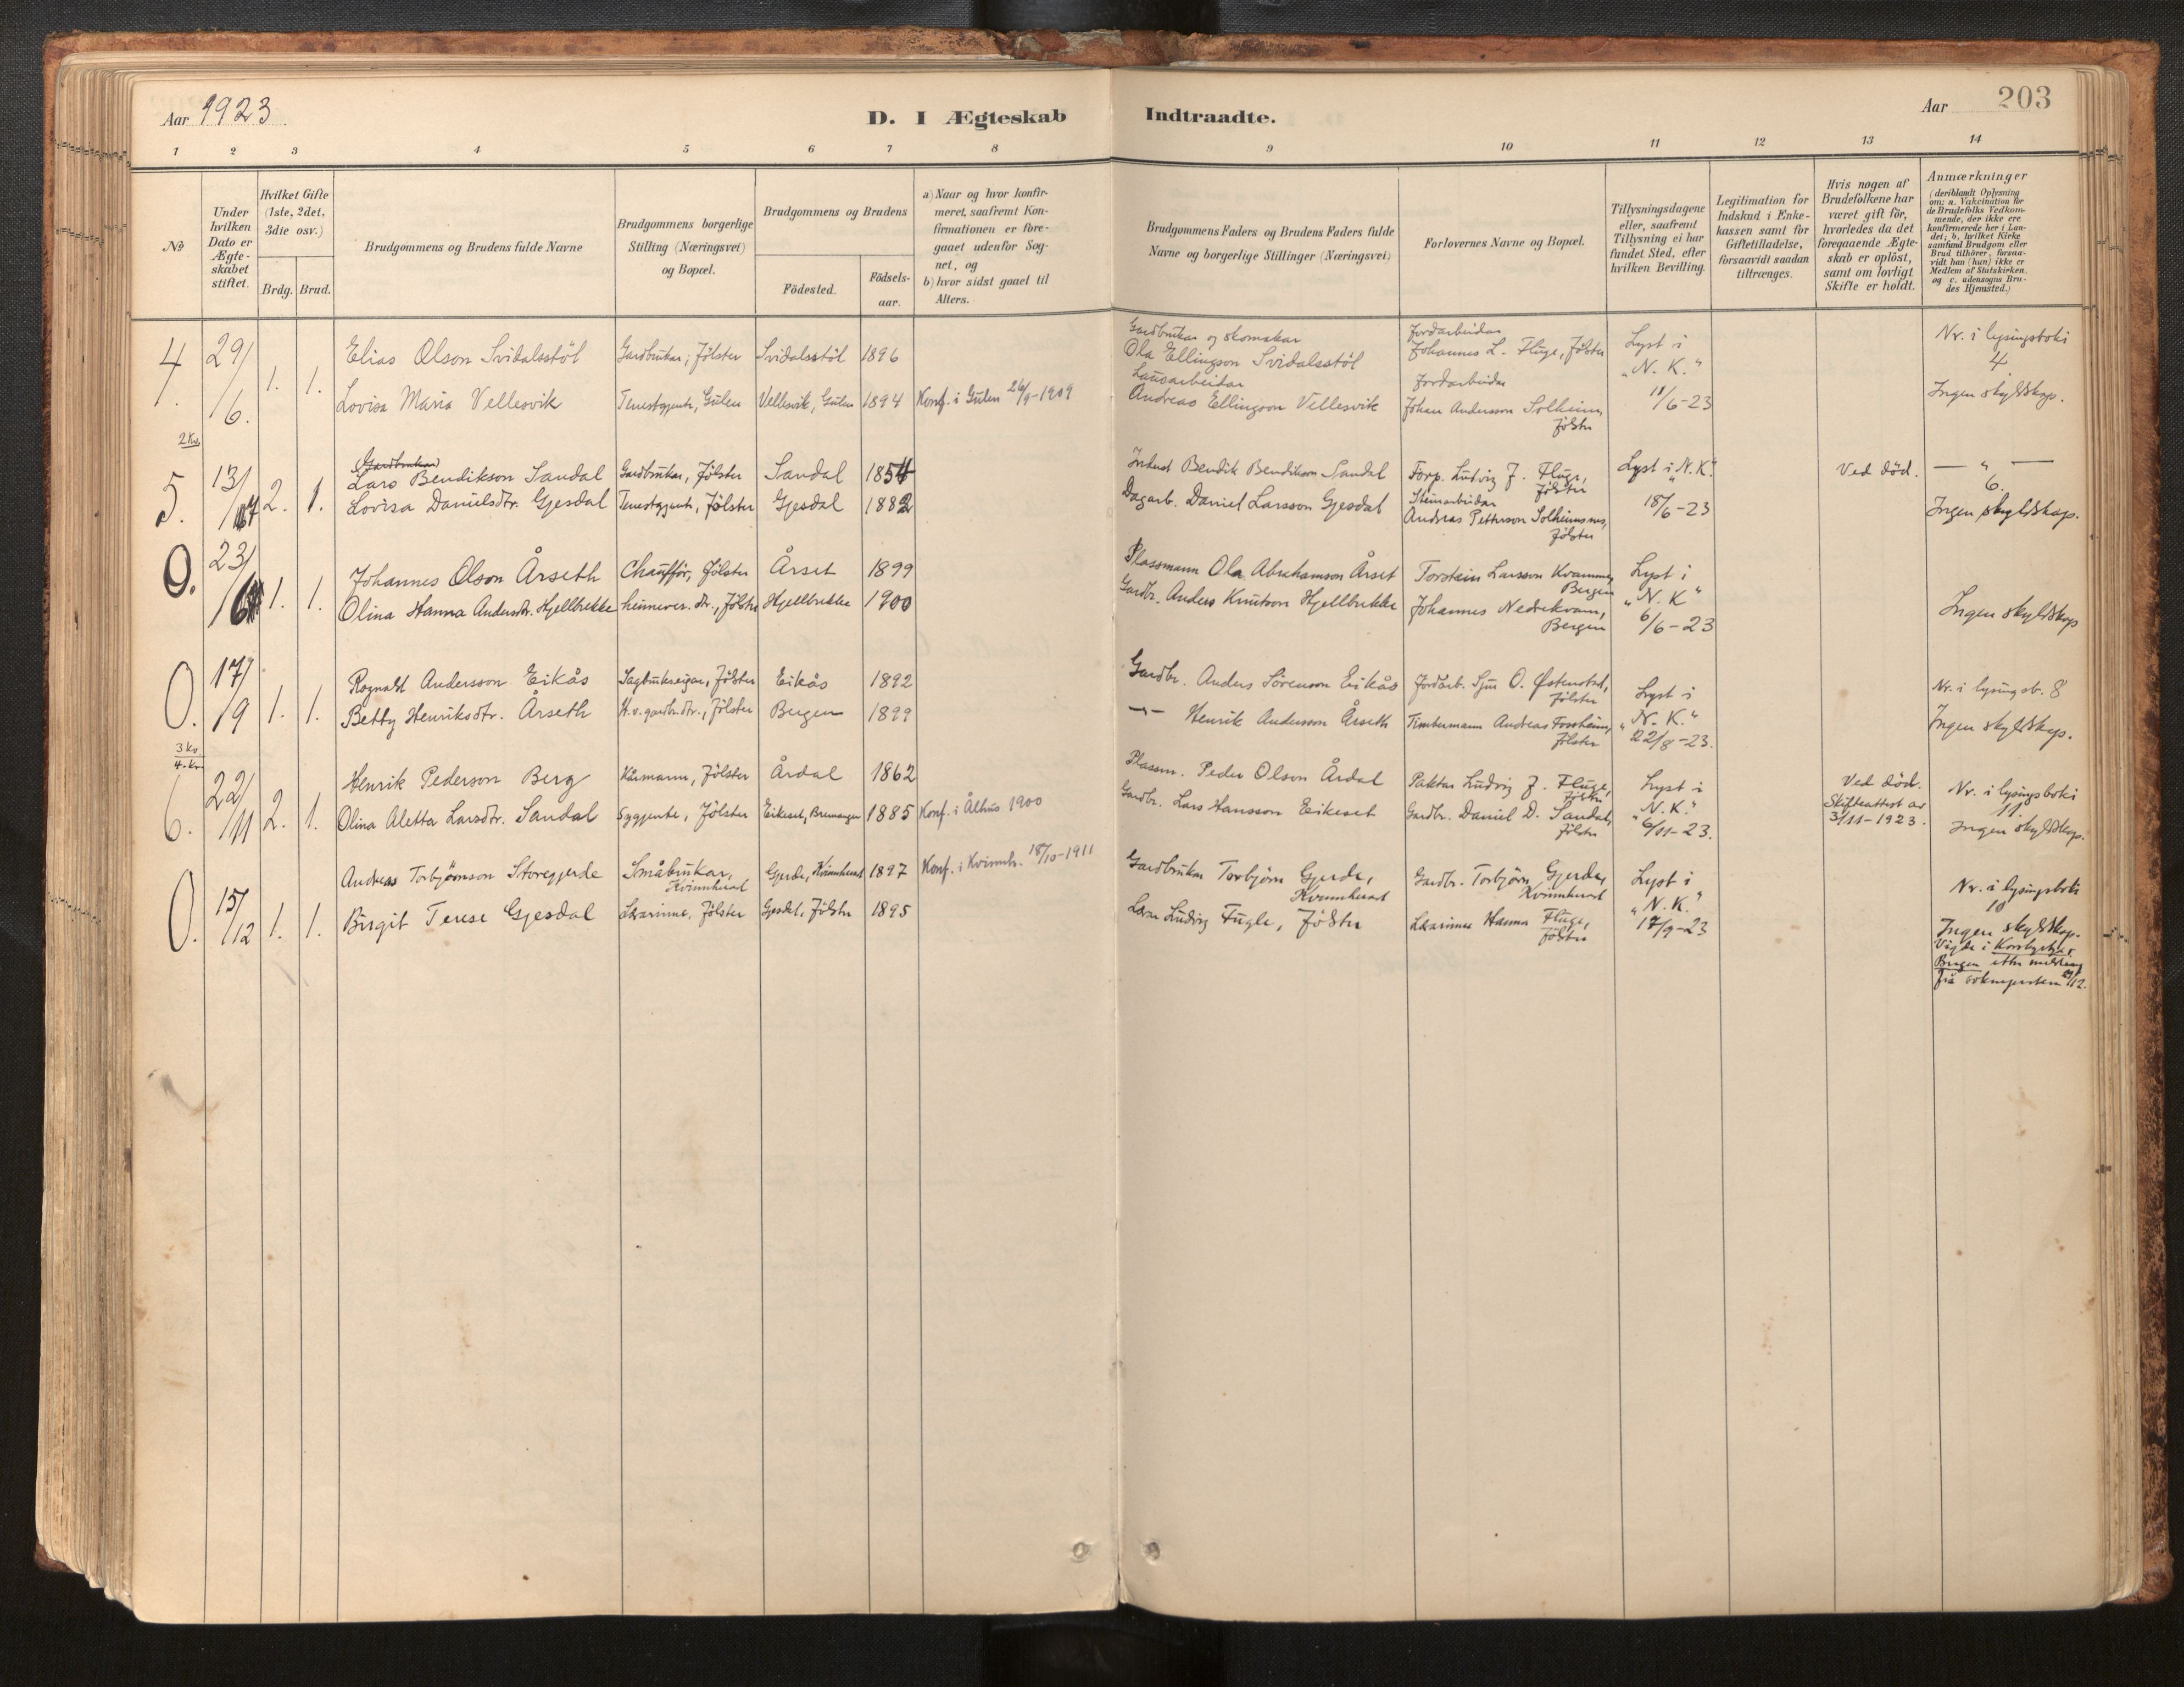 Aar 1923
D. I Ægteskab Indtraadte.
Aar 203
1 2 3 4 5 6 7 8 9 10 11 12 13 14
No
Under hvilken Dato er Ægte-skabet stiftet.
Hvilket Gifte (1ste, 2det, 3die osv.)
Brdg. Brud.
Brudgommens og Brudens fulde Navne
Brudgommens borgerlige Stilling (Næringsvei) og Bopæl.
Brudgommens og Brudens
Födested.
Födsels-aar.
a) Naar og hvor konfir-meret, saafremt Kon-firmationen er fore-gaaet udenfor Sog-net, og
b) hvor sidst gaaet til Alters.
Brudgommens Faders og Brudens Faders fulde Navne og borgerlige Stillinger (Næringsvei)
Forlovernes Navne og Bopæl.
Tillysningsdagene eller, saafremt Tillysning ei har fundet Sted, efter hvilken Bevilling.
Legitimation for Indskud i Enke-kassen samt for Giftetilladelse, forsaavidt saadan tiltrænges.
Hvis nogen af Brudefolkene har været gift för, hvorledes da det foregaaende Ægte-skab er oplöst, samt om lovligt Skifte er holdt.
Anmærkninger
(deriblandt Oplysning om: a. Vakcination for de Brudefolks Vedkom-mende, der ikke ere konfirmerede her i Lan-det; b. hvilket Kirke samfund Brudgom eller Brud tilhörer, forsaa-vidt han (hun) ikke er Medlem af Statskirken, og c. udensogns Bru-des Hjemsted.)
4. 29/6. 1. 1.
Elias Olson Svidalsstöl Gardbrukar, Jölster Svidalsstöl 1896
Lovisa Maria Vellesvik Tenestgjente, Gulen Vellesvik, Gulen 1894 Konf. i Gulen 26/9-1909
Gardbrukar og skomakar
Ola Ellingson Svidalsstöl
Lausarbeidar
Andreas Ellingson Vellesvik
Jordarbeidar
Johannes L. Fluge, Jölster
Jordarbeidar
Johan Andersson Solheim,
Jölster
Lyst i
"N. K."
11/6-23
Nr. i lysingsboki
4
Ingen skyldskap.
2 Kv.
5. 13/7 2. 1.
Gardbrukar
Lars Bendikson Sandal Gardbrukar, Jölster Sandal 1854
Lovisa Danielsdtr. Gjesdal Tenestgjente, Jölster Gjesdal 1882
Bendik Bendikson Sandal
Dagarb. Daniel Larsson Gjesdal
Forp. Ludvig J. Fluge,
Jölster
Steinarbeidar
Andreas Petterson Solheimsnes,
Jölster
Lyst i "N. K."
18/6-23
Ved död.
— " —
6.
Ingen skyldskap.
0. 23/6 1. 1.
Johannes Olson Årseth Chaufför, Jölster Årset 1899
Olina Hanna Andersdtr. Hjellbrekke heimever. dtr., Jölster Hjellbrekke 1900
Plassmann Ola Abrahamson Årset
Gardbr. Anders Knutson Hjellbrekke
Torstein Larsson Kvamme,
Bergen
Johannes Nedrekvam,
Bergen
Lyst i
"N. K"
6/6-23
Ingen skyldskap
0. 17/9 1. 1.
Rognald Andersson Eikås Sagbrukseigar, Jölster Eikås 1892
Betty Henriksdtr. Årseth H. v. gardbr.dtr., Jölster Bergen 1899
Gardbr. Anders Sörenson Eikås
—"— Henrik Andersson Årseth
Jordarb. Sjur O. Østenstad,
Jölster
Timbermann Andreas Forsheim,
Jölster
Lyst i
"N. K."
22/8-23.
Nr. i lysingsb. 8
Ingen skyldskap.
3 kv.
4. kv.
6. 22/11 2. 1.
Henrik Pederson Berg Kårmann, Jölster Årdal 1862
Olina Aletta Larsdtr. Sandal Sygjente, Jölster Eikeset, Bremanger 1885 Konf. i Ålhus 1900
Plassm. Peder Olson Årdal
Gardbr. Lars Hansson Eikeset
Paktar Ludvig J. Fluge,
Jölster
Gardbr. Daniel D. Sandal,
Jölster
Lyst i
"N. K."
6/11-23.
Ved död.
Skifteattest av
3/11-1923.
Nr. i lysingsboki
11.
Ingen skyldskap.
0. 15/12 1. 1.
Andreas Torbjörnson Storegjerde Småbrukar,
Kvinnherad Gjerde, Kvinnherad 1897 Konf. i Kvinnh. 18/10-1911
Birgit Terese Gjesdal Lærarinne, Jölster Gjesdal, Jölster 1895
Gardbrukar Torbjörn Gjerde,
Kvinnherad
Lærar Ludvig Fugle, Jölster
Gardbr. Torbjörn Gjerde,
Kvinnherad
Lærarinne Hanna Fluge,
Jölster
Lyst i
"N. K."
17/9-23
Nr. i lysingsboki
10
Ingen skyldskap.
Vigde i Korskyrkja,
Bergen etter melding
frå soknepresten /12.